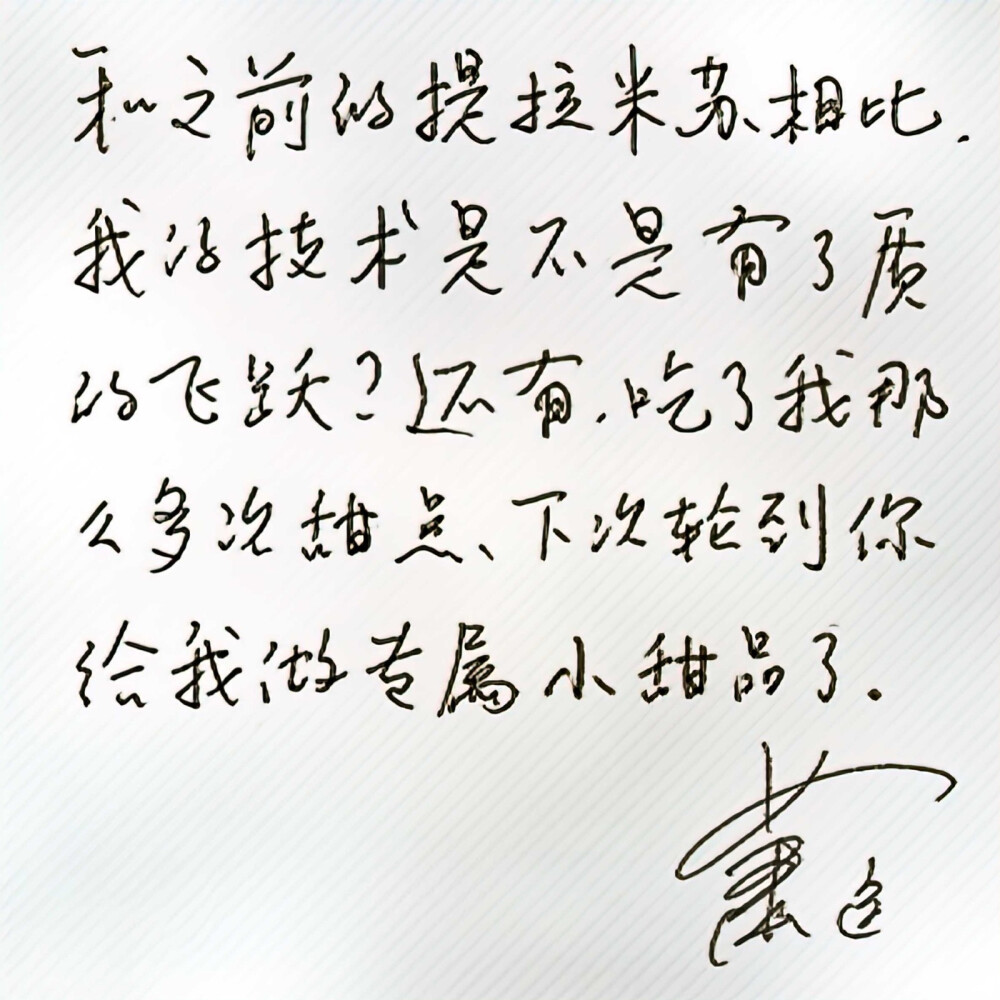 和之前的提拉米苏相比,
我的技术是不是有了质
的飞跃?还有,吃了我那
么多次甜点、下次轮到你
给我做专属小甜品了.